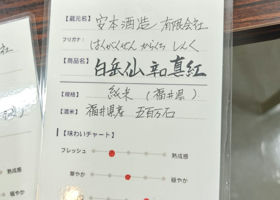 【蔵元名】 安本酒造 有限会社
フリガナ はくがくせん からくち しんく
【商品名】 白岳仙 辛口真紅
【規格】 純米 (福井県)
【酒米】 福井県産 五百万石
【味わいチャート】
フレッシュ 熟成感
華やか 穏やか